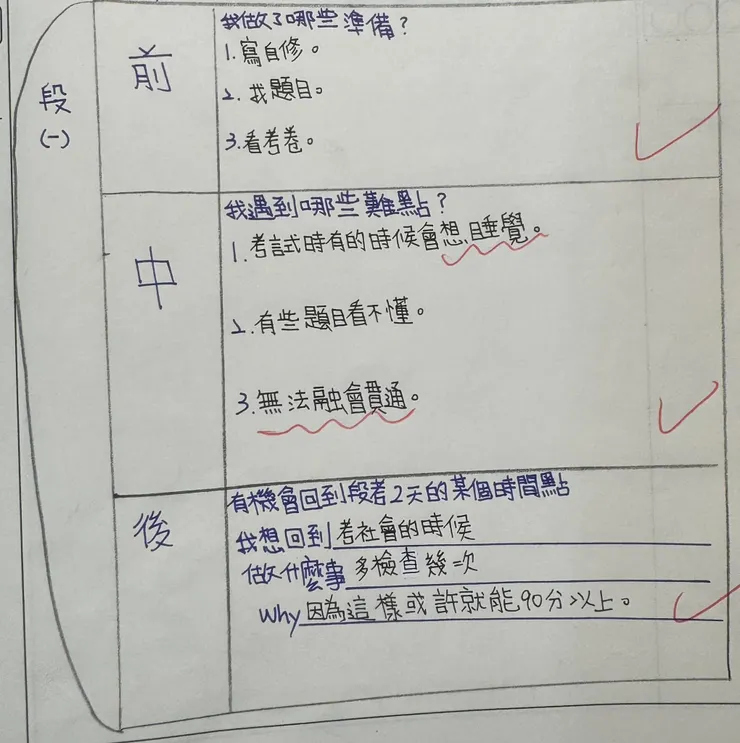 段
(一)
前
我做了哪些準備？
1.寫自修。
2.找題目。
3.看考卷。
中
我遇到哪些難點？
1.考試時有的時候會想睡覺。
2.有些題目看不懂。
3.無法融會貫通。
後
有機會回到段考2天的某個時間點
我想回到考社會的時候
做什麼事多檢查幾次
Why因為這樣或許就能90分以上。